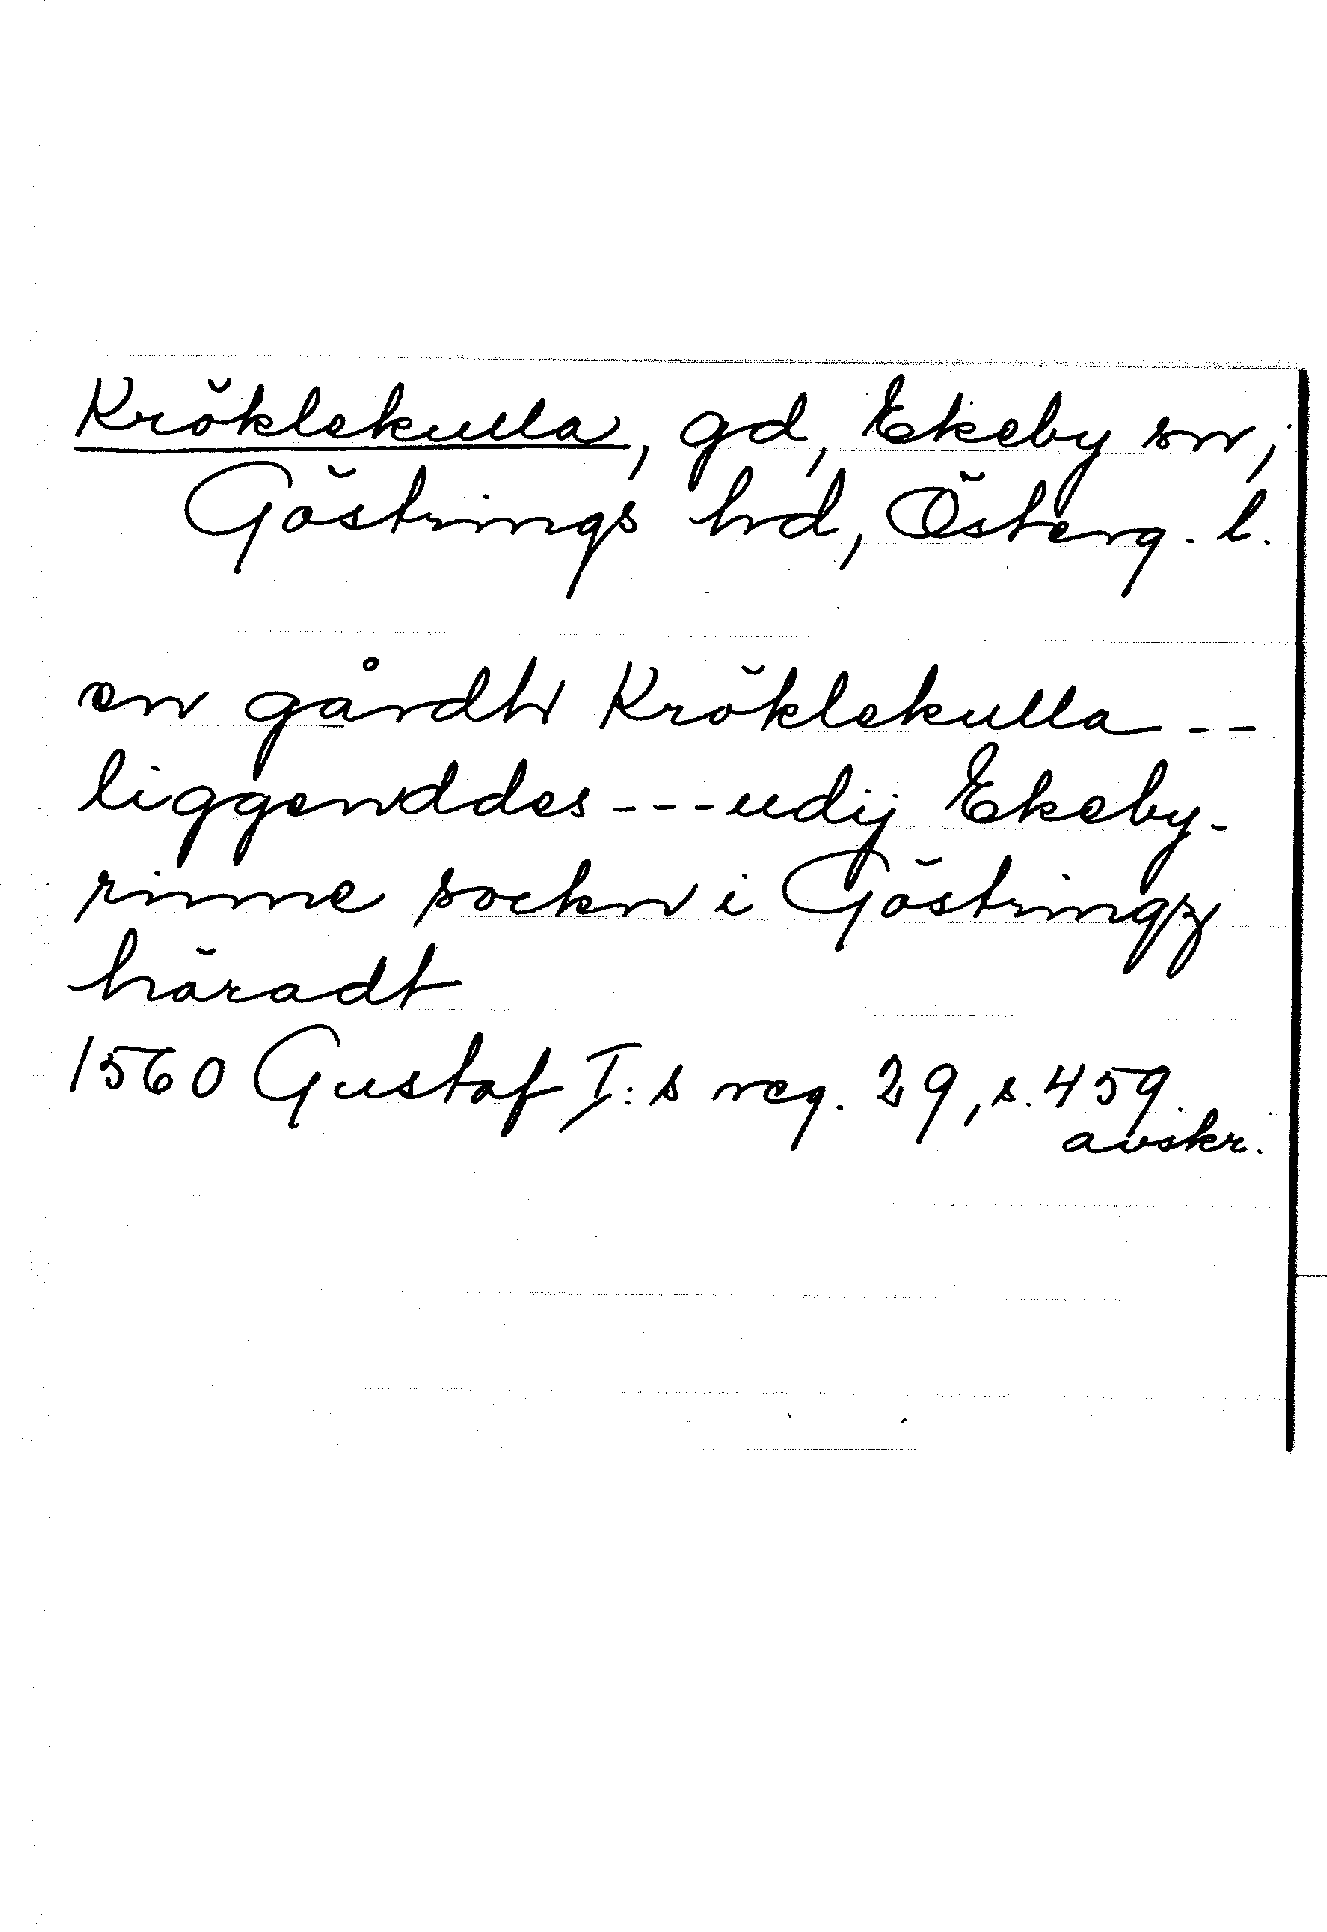 Kröklekulla, gd, Ekeby sn,
Göstrings hd, Österg. l.
en gårdh Kröklekulla --
liggenddes --- udij Ekeby-
rinne sockn i Göstringz
häradt
1560 Gustaf I:s reg. 29, s. 459.
avskr.